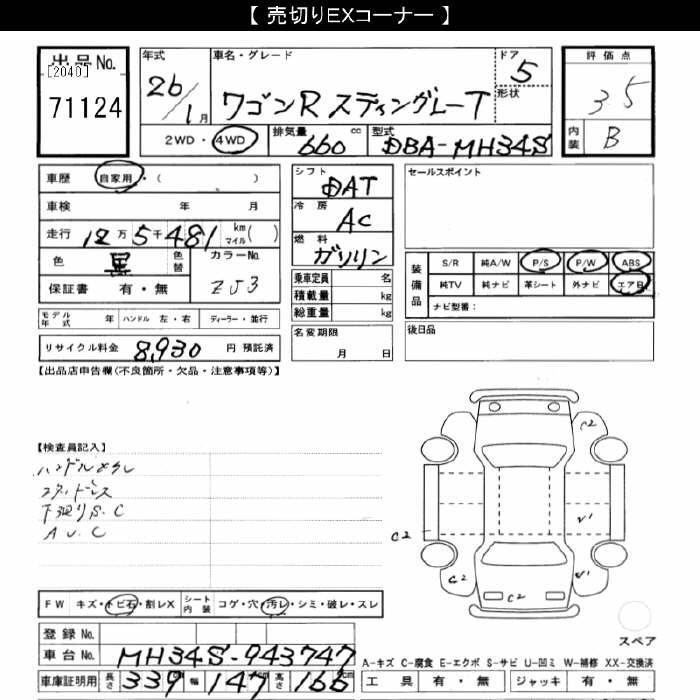 【 売切りEXコーナー 】
出品No.
[2040]
71124
年式
26/1月
車名・グレード
ワゴンR スティングレーT
ドア
5
形状
2WD・4WD
排気量
660 cc
型式
DBA-MH34S
評価点
3.5
内装
B
車歴 自家用・( )
車検 年 月
走行 12万5千481 km マイル( )
色 黒 色替
カラーNo.
ZJ3
保証書 有・無
シフト
DAT
冷房
AC
燃料
ガソリン
乗車定員 名
積載量 kg
総重量 kg
セールスポイント
装備品
S/R 純A/W P/S P/W ABS
純TV 純ナビ 革シート 外ナビ エアB
ナビ型番:
モデル年式 年 ハンドル 左・右 ディーラー・並行
リサイクル料金 8,930 円 預託済
名変期限
月 日
後日品
【出品店申告欄(不良箇所・欠品・注意事項等)】
【検査員記入】
ハンドルスレ
スタッドレス
下廻りS.C
A U.C
C2
C2
C2
C2
C2
スペア
FW キズ・トビ石・割レX
シート内装 コゲ・穴・汚レ・シミ・破レ・スレ
登録No.
車台No. MH34S-943747
車庫証明用 長さ 339 cm 幅 147 cm 高さ 166 cm
A-キズ C-腐食 E-エクボ S-サビ U-凹ミ W-補修 XX-交換済
工具 有・無 ジャッキ 有・無